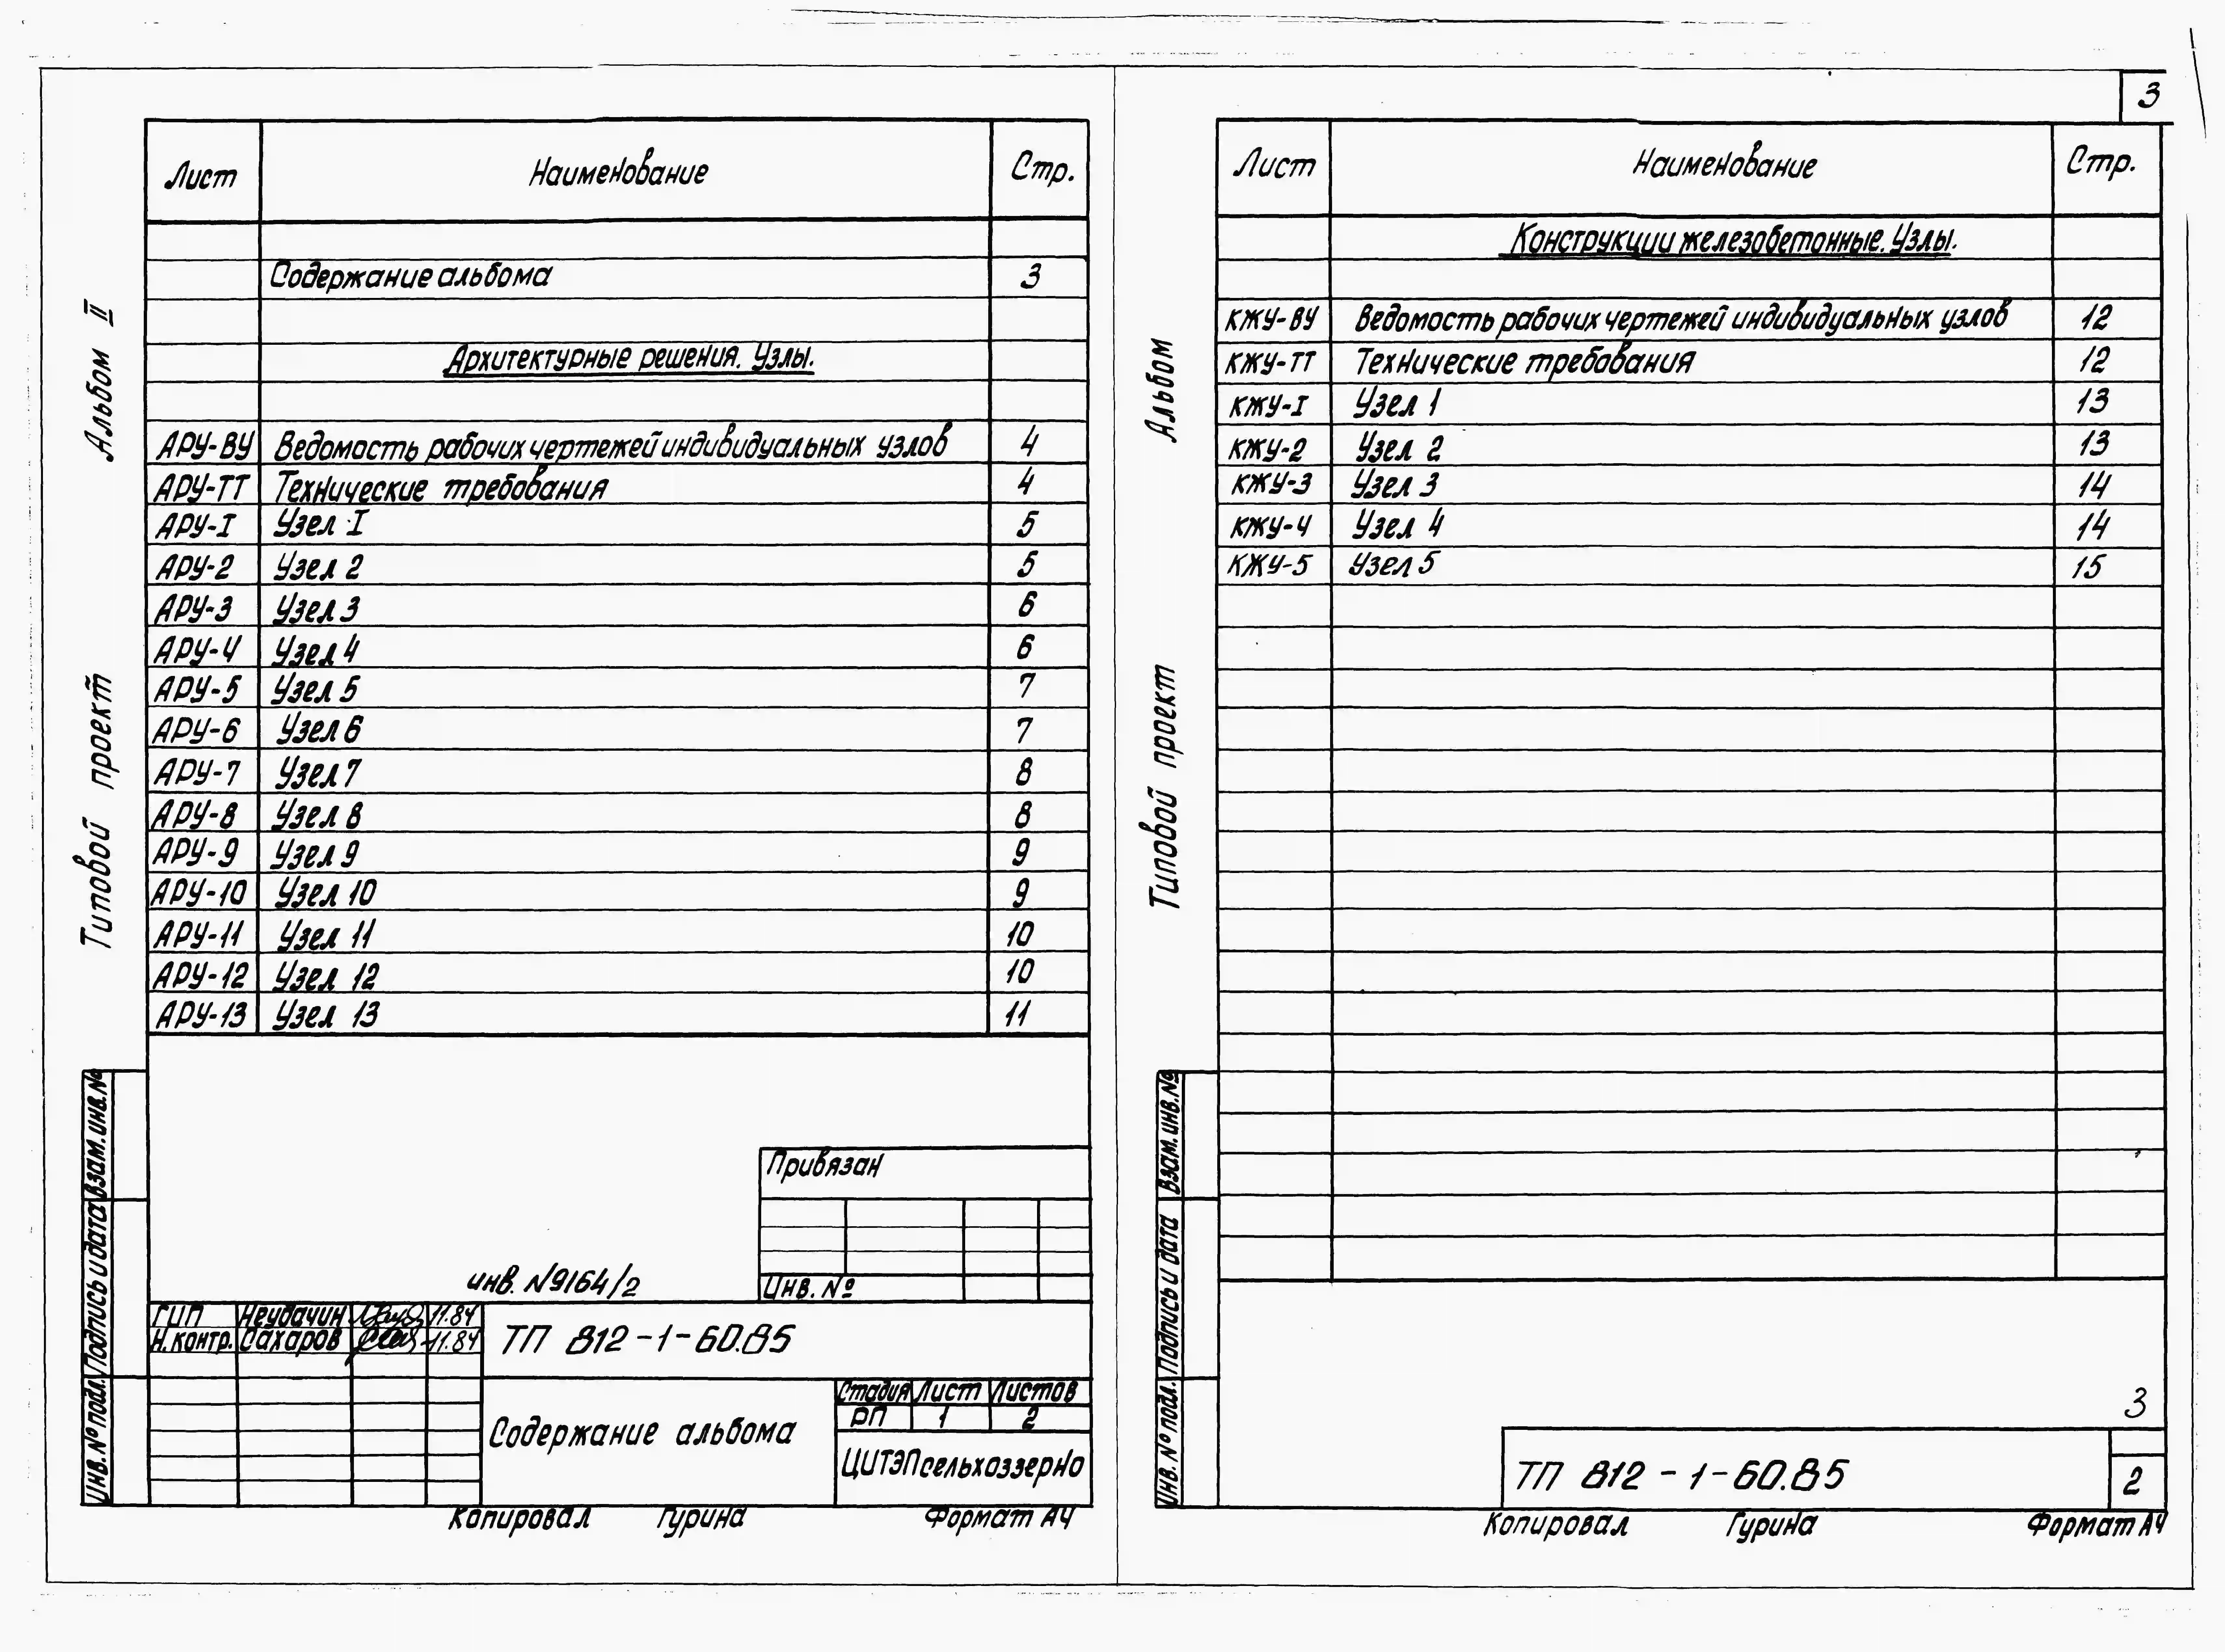 3
Альбом II
Типовой проект
Лист Наименование Стр.
Содержание альбома 3
Архитектурные решения. Узлы.
АРУ-ВУ Ведомость рабочих чертежей индивидуальных узлов 4
АРУ-ТТ Технические требования 4
АРУ-I Узел I 5
АРУ-2 Узел 2 5
АРУ-3 Узел 3 6
АРУ-4 Узел 4 6
АРУ-5 Узел 5 7
АРУ-6 Узел 6 7
АРУ-7 Узел 7 8
АРУ-8 Узел 8 8
АРУ-9 Узел 9 9
АРУ-10 Узел 10 9
АРУ-11 Узел 11 10
АРУ-12 Узел 12 10
АРУ-13 Узел 13 11
Взам. инв. №
Подпись и дата
Инв. № подл.
Привязан
Инв. №
инв. №9164/2
ГИП Неудачин 11.84
Н. контр. Сахаров 11.84
ТП 812-1-60.85
Содержание альбома
Стадия Лист Листов
РП 1 2
ЦИТЭПсельхоззерно
Копировал Гурина Формат А4
Альбом
Типовой проект
Лист Наименование Стр.
Конструкции железобетонные. Узлы.
КЖУ-ВУ Ведомость рабочих чертежей индивидуальных узлов 12
КЖУ-ТТ Технические требования 12
КЖУ-I Узел 1 13
КЖУ-2 Узел 2 13
КЖУ-3 Узел 3 14
КЖУ-4 Узел 4 14
КЖУ-5 Узел 5 15
Взам. инв. №
Подпись и дата
Инв. № подл.
3
ТП 812-1-60.85
2
Копировал Гурина Формат А4